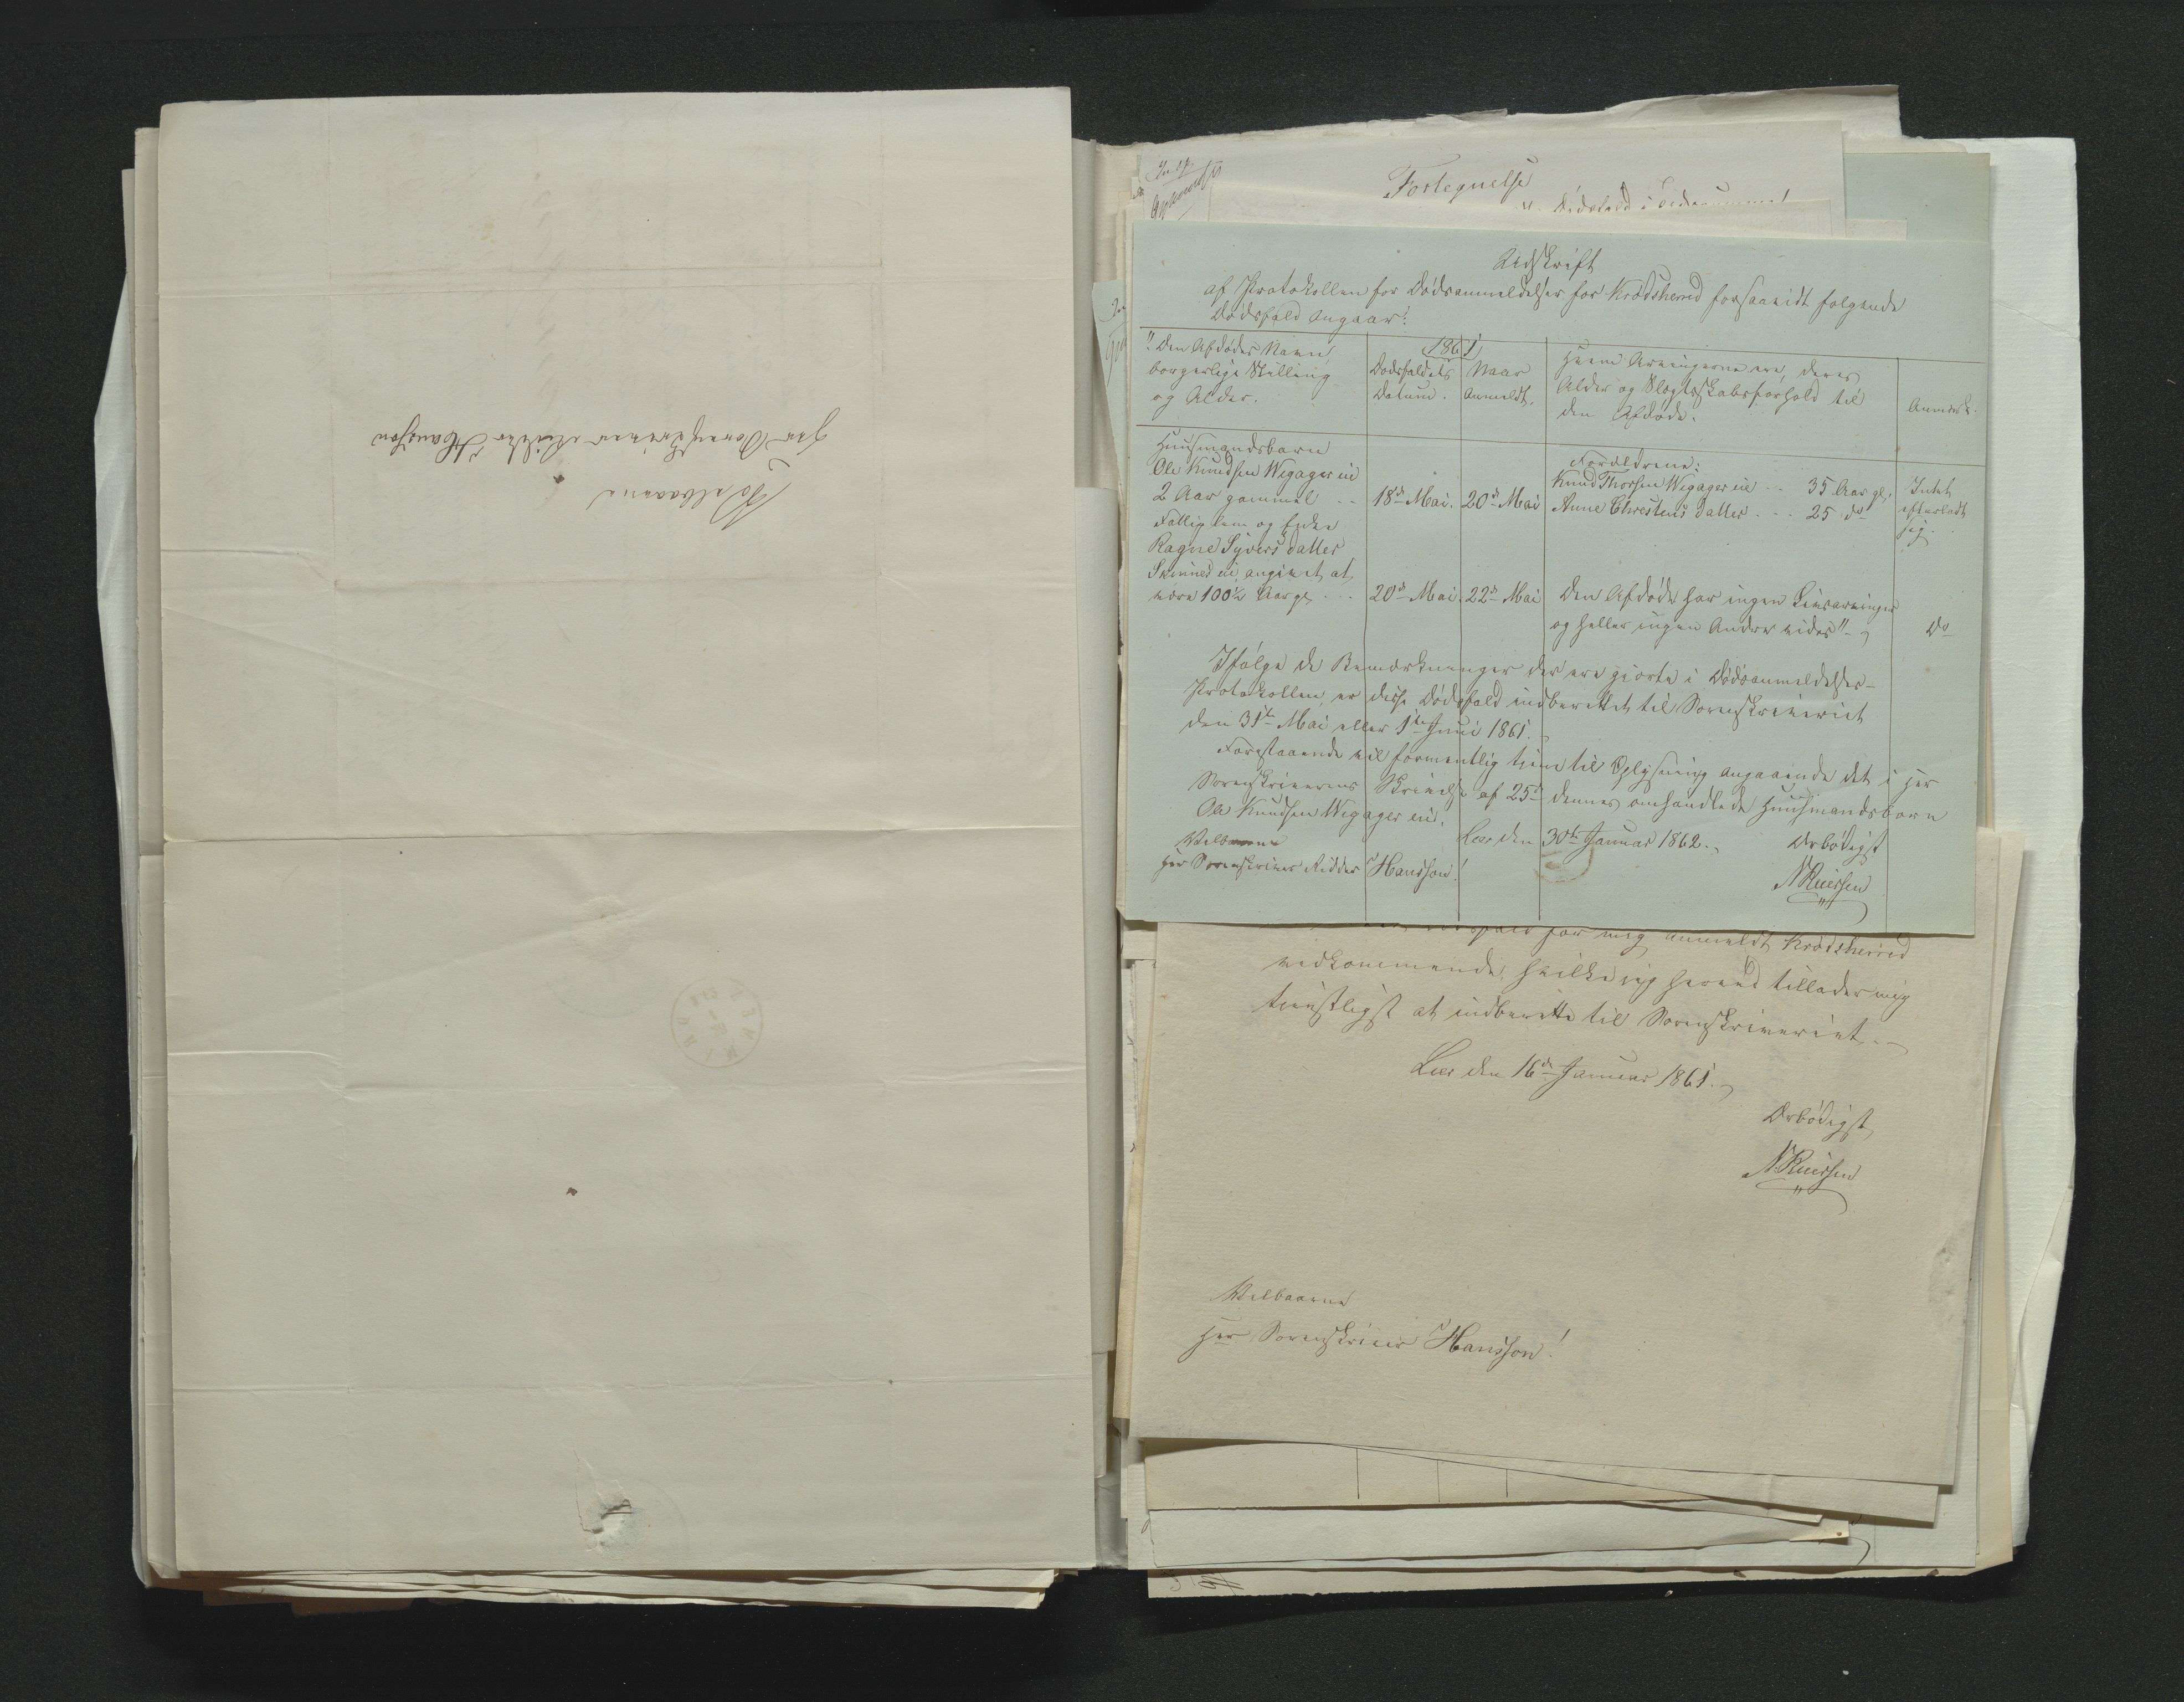 Velbaarne
Herr Sorenskriver Ridder Hansson
Fortegnelse
Udskrift
af Protokollen for Dødsanmeldelser for Krødsherred forsaavidt følgende
Dødsfald angaar:
"Den Afdødes Navn
borgerlige Stilling
og Alder.
1861
Dødsfaldets
Datum.
Naar
Anmeldt.
Hvem Arvingerne ere, deres
Alder og Slægtskabsforhold til
den Afdøde.
Anmærk.
Huusmandsbarn
Ole Knudsen Wegager eie
2 Aar gammel - -
18de Mai.
20de Mai
Forældrene:
Knud Thorsen Wegager eie - - 35 Aar gl.
Anne Christens datter - - - 25 do
Intet
efterladt
sig.
Fattiglem og Enke
Ragne Syvers datter
Skinnes eie, angivet at
være 100½ Aar gl. - -
20de Mai.
22de Mai
Den Afdøde har ingen Livsarvinger
og heller ingen Andre vides"-
Do
Ifølge de Bemærkninger der ere gjorte i Dødsanmeldelses-
Protokollen, er disse Dødsfald indberettet til Sorenskriveriet
den 31te Mai eller 1ste Juni 1861.
Forestaaende vil formentlig tjene til Oplysning angaaende det i Hr
Sorenskriverens Skrivelse af 25de dennes omhandlede Huusmandsbarn
Ole Knudsen Wegager eie.
Lees den 30te Januar 1862.
Ærbødigst
N Ruersen
Velbaarne
Herr Sorenskriver Ridder Hansson!
for mig anmeldt Krødsherred
vedkommende, hvilket jeg herved tillader mig
tjenstligst at indberette til Sorenskriveriet.
Lees den 16de Januar 1861.
Ærbødigst
N Ruersen
Velbaarne
Herr Sorenskriver Hansson!